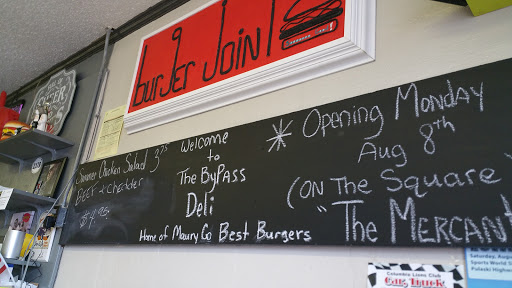 burger Joint
Summer Chicken Salad 3.75
Beef & Cheddar
$4.95
Welcome
to
The ByPass
Deli
Home of Maury Co Best Burgers
* Opening Monday
Aug 8th
(On The Square
"The Mercant
Columbia Lions Club
Saturday, Aug
Sports World
Pulaski Highw